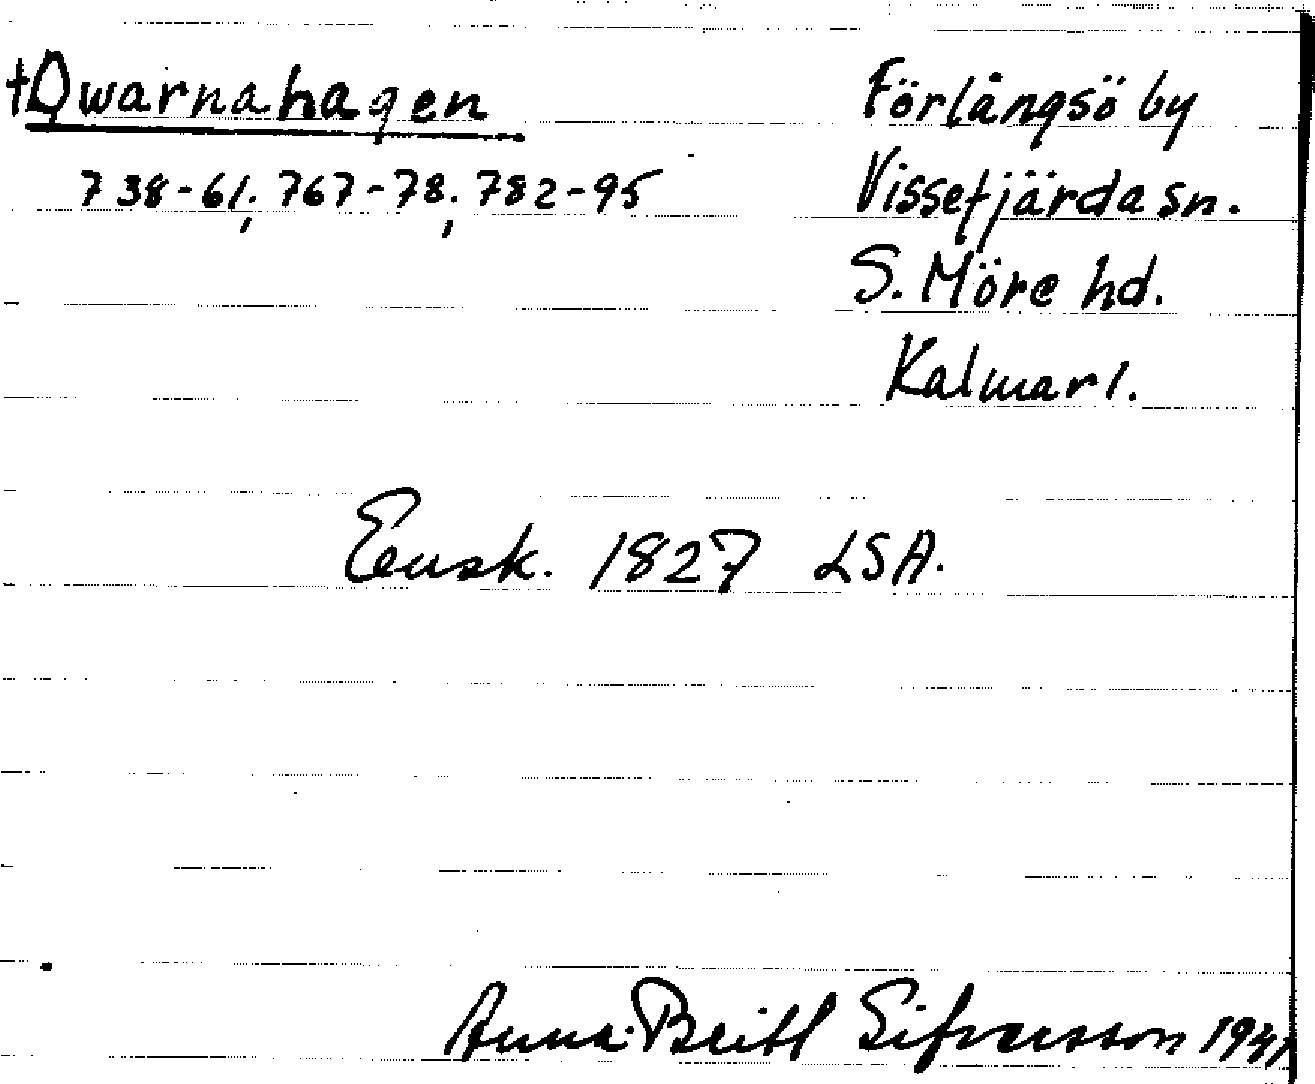 †Qwarnahagen
738-61; 767-78; 782-95
Förlångsö by
Vissefjärda sn.
S. Möre hd.
Kalmar l.
Ensk. 1827 LSA.
Anna-Britt Sifvarsson